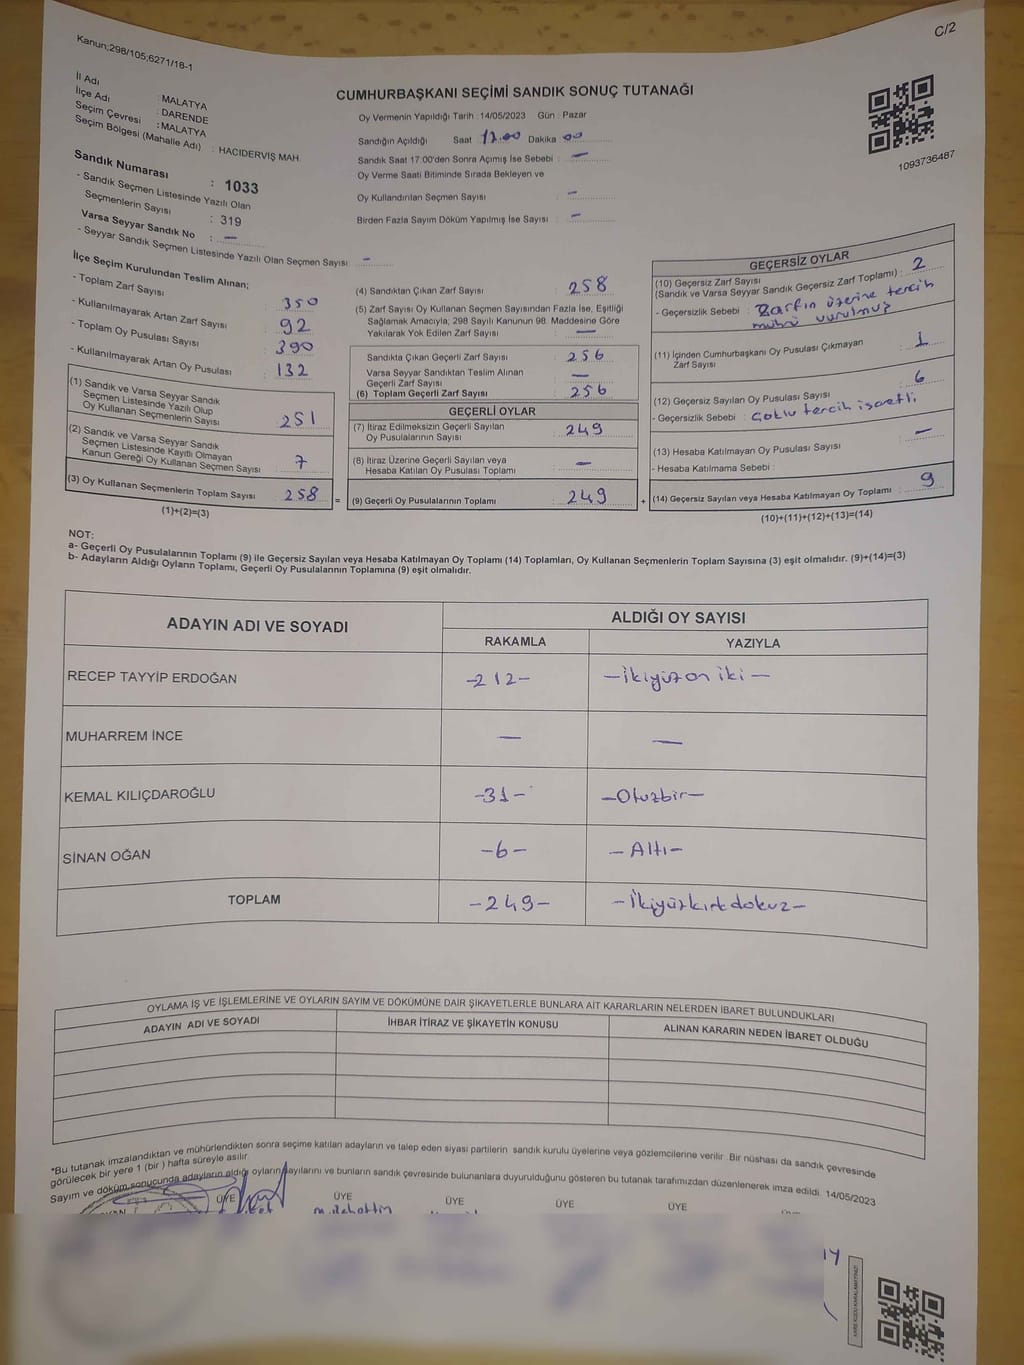 C/2
Kanun;298/105;6271/18-1
İl Adı : MALATYA
İlçe Adı : DARENDE
Seçim Çevresi : MALATYA
Seçim Bölgesi (Mahalle Adı) : HACIDERVİŞ MAH
Sandık Numarası : 1033
- Sandık Seçmen Listesinde Yazılı Olan
Seçmenlerin Sayısı : 319
Varsa Seyyar Sandık No : —
- Seyyar Sandık Seçmen Listesinde Yazılı Olan Seçmen Sayısı : –
CUMHURBAŞKANI SEÇİMİ SANDIK SONUÇ TUTANAĞI
Oy Vermenin Yapıldığı Tarih : 14/05/2023 Gün : Pazar
Sandığın Açıldığı Saat 17.00 Dakika 00
Sandık Saat 17:00'den Sonra Açımış İse Sebebi : —
Oy Verme Saati Bitiminde Sırada Bekleyen ve
Oy Kullandırılan Seçmen Sayısı : –
Birden Fazla Sayım Döküm Yapılmış İse Sayısı : –
1093736487
İlçe Seçim Kurulundan Teslim Alınan;
- Toplam Zarf Sayısı : 350
- Kullanılmayarak Artan Zarf Sayısı : 92
- Toplam Oy Pusulası Sayısı : 390
- Kullanılmayarak Artan Oy Pusulası : 132
(1) Sandık ve Varsa Seyyar Sandık
Seçmen Listesinde Yazılı Olup
Oy Kullanan Seçmenlerin Sayısı : 251
(2) Sandık ve Varsa Seyyar Sandık
Seçmen Listesinde Kayıtlı Olmayan
Kanun Gereği Oy Kullanan Seçmen Sayısı : 7
(3) Oy Kullanan Seçmenlerin Toplam Sayısı : 258
(1)+(2)=(3)
(4) Sandıktan Çıkan Zarf Sayısı : 258
(5) Zarf Sayısı Oy Kullanan Seçmen Sayısından Fazla İse, Eşitliği
Sağlamak Amacıyla, 298 Sayılı Kanunun 98. Maddesine Göre
Yakılarak Yok Edilen Zarf Sayısı : —
Sandıkta Çıkan Geçerli Zarf Sayısı : 256
Varsa Seyyar Sandıktan Teslim Alınan
Geçerli Zarf Sayısı : —
(6) Toplam Geçerli Zarf Sayısı : 256
GEÇERLİ OYLAR
(7) İtiraz Edilmeksizin Geçerli Sayılan
Oy Pusulalarının Sayısı : 249
(8) İtiraz Üzerine Geçerli Sayılan veya
Hesaba Katılan Oy Pusulası Toplamı : —
= (9) Geçerli Oy Pusulalarının Toplamı : 249
GEÇERSİZ OYLAR
(10) Geçersiz Zarf Sayısı
(Sandık ve Varsa Seyyar Sandık Geçersiz Zarf Toplamı) : 2
- Geçersizlik Sebebi : Zarfın üzerine tercih
mührü vurulmuş
(11) İçinden Cumhurbaşkanı Oy Pusulası Çıkmayan
Zarf Sayısı : 1
(12) Geçersiz Sayılan Oy Pusulası Sayısı : 6
- Geçersizlik Sebebi : Çoklu tercih işaretli
(13) Hesaba Katılmayan Oy Pusulası Sayısı : —
- Hesaba Katılmama Sebebi :
+ (14) Geçersiz Sayılan veya Hesaba Katılmayan Oy Toplamı : 9
(10)+(11)+(12)+(13)=(14)
NOT:
a- Geçerli Oy Pusulalarının Toplamı (9) ile Geçersiz Sayılan veya Hesaba Katılmayan Oy Toplamı (14) Toplamları, Oy Kullanan Seçmenlerin Toplam Sayısına (3) eşit olmalıdır. (9)+(14)=(3)
b- Adayların Aldığı Oyların Toplamı, Geçerli Oy Pusulalarının Toplamına (9) eşit olmalıdır.
ADAYIN ADI VE SOYADI ALDIĞI OY SAYISI
RAKAMLA YAZIYLA
RECEP TAYYİP ERDOĞAN -212- -ikiyüzon iki-
MUHARREM İNCE — —
KEMAL KILIÇDAROĞLU -31- -Otuzbir-
SİNAN OĞAN -6- -Altı-
TOPLAM -249- -İkiyüzkırkdokuz-
OYLAMA İŞ VE İŞLEMLERİNE VE OYLARIN SAYIM VE DÖKÜMÜNE DAİR ŞİKAYETLERLE BUNLARA AİT KARARLARIN NELERDEN İBARET BULUNDUKLARI
ADAYIN ADI VE SOYADI İHBAR İTİRAZ VE ŞİKAYETİN KONUSU ALINAN KARARIN NEDEN İBARET OLDUĞU
*Bu tutanak imzalandıktan ve mühürlendikten sonra seçime katılan adayların ve talep eden siyasi partilerin sandık kurulu üyelerine veya gözlemcilerine verilir. Bir nüshası da sandık çevresinde
görülecek bir yere 1 (bir ) hafta süreyle asılır.
Sayım ve döküm sonucunda adayların aldığı oyların sayılarını ve bunların sandık çevresinde bulunanlara duyurulduğunu gösteren bu tutanak tarafımızdan düzenlenerek imza edildi. 14/05/2023
ÜYE ÜYE ÜYE ÜYE ÜYE